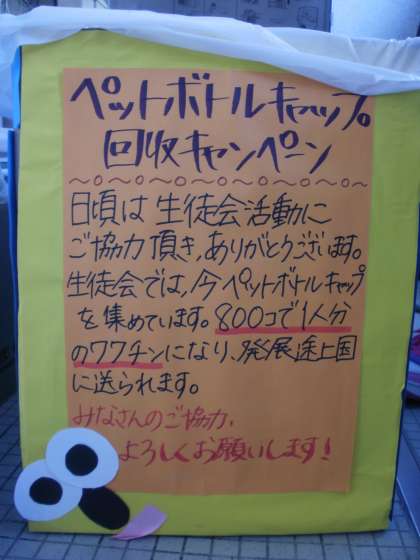 ペットボトルキャップ
回収キャンペーン
日頃は生徒会活動に
ご協力頂き,ありがとうございます。
生徒会では,今ペットボトルキャップ
を集めています。800コで1人分
のワクチンになり、発展途上国
に送られます。
みなさんのご協力,
よろしくお願いします!